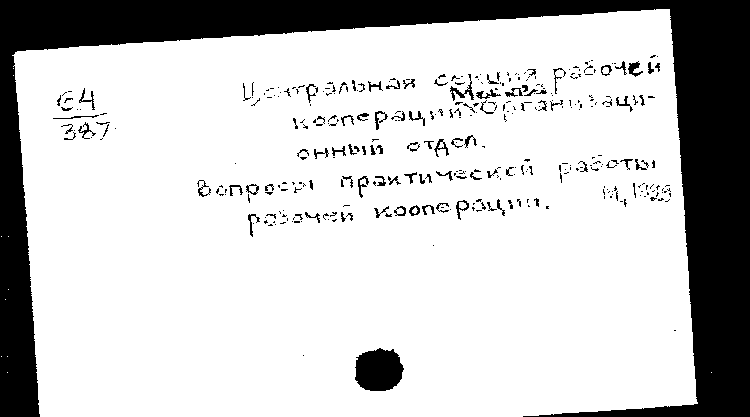 Е4
387
Центральная секция рабочей
Москва
кооперации Организаци-
онный отдел.
Вопросы практической работы
рабочей кооперации. М,